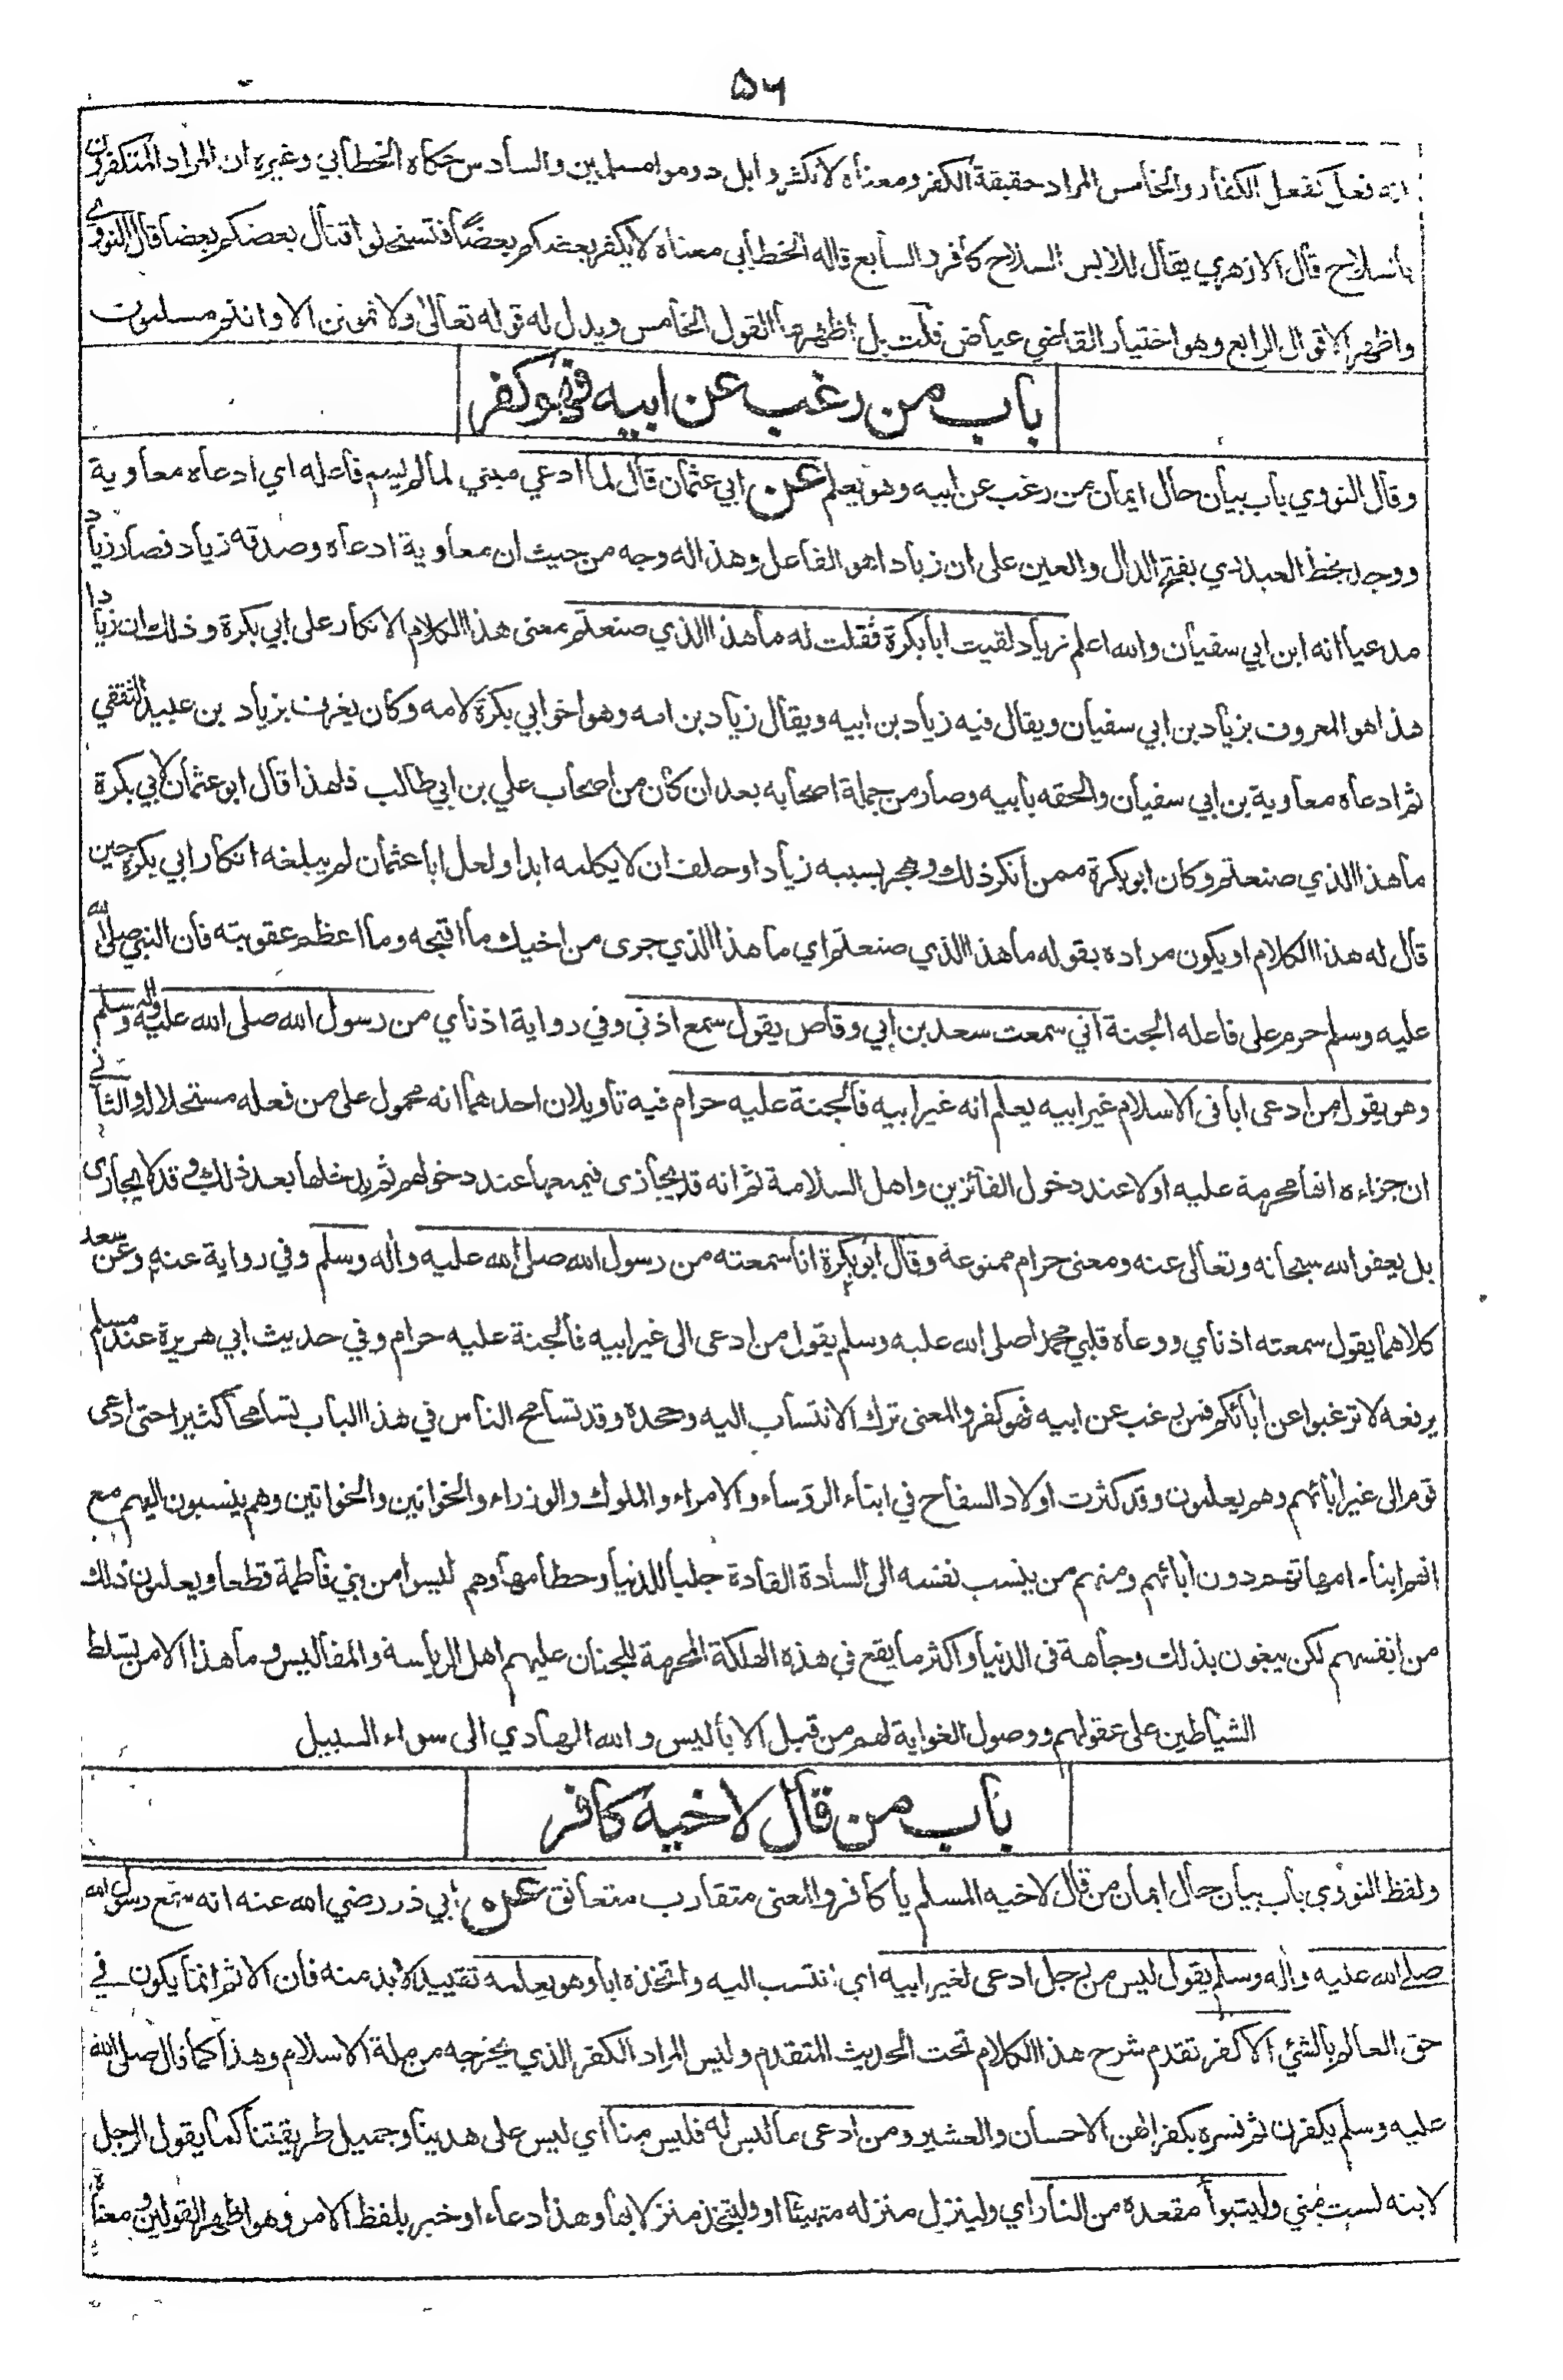 ٥٦
انه فعل كفعل الكفار والخامس المراد حقيقة الكفر ومعناه لا تكفروا بل دوموا مسلمين والسادس حكاه الخطابي وغيره ان المراد المتكفرون
بالسلاح قال الازهري يقال للابس السلاح كافر والسابع قاله الخطابي معناه لا يكفر بعضكم بعضا فتستحلوا قتال بعضكم بعضا قال النووي
واظهر الاقوال الرابع وهو اختيار القاضي عياض قلت بل اظهرها القول الخامس ويدل له قوله تعالى ولا تموتن الا وانتم مسلمون
باب من رغب عن ابيه فهو كفر
وقال النووي باب بيان حال ايمان من رغب عن ابيه وهو يعلم عن ابي عثمان قال لما ادعي مبني لما لم يسم فاعله اي ادعاه معاوية
ووجد بخط العبدري بفتح الدال والعين على ان زيادا هو الفاعل وهذا له وجه من حيث ان معاوية ادعاه وصدقه زياد فصار زياد
مدعيا انه ابن ابي سفيان والله اعلم زياد لقيت ابا بكرة فقلت له ما هذا الذي صنعتم معنى هذا الكلام الانكار على ابي بكرة وذلك ان زيادا
هذا هو المعروف بزياد بن ابي سفيان ويقال فيه زياد بن ابيه ويقال زياد بن امه وهو اخو ابي بكرة لامه وكان يعرف بزياد بن عبيد الثقفي
ثم ادعاه معاوية بن ابي سفيان والحقه بابيه وصار من جملة اصحابه بعد ان كان من اصحاب علي بن ابي طالب فلهذا قال ابو عثمان لابي بكرة
ما هذا الذي صنعتم وكان ابو بكرة ممن انكر ذلك وهجر بسببه زيادا وحلف ان لا يكلمه ابدا ولعل ابا عثمان لم يبلغه انكار ابي بكرة حين
قال له هذا الكلام او يكون مراده بقوله ما هذا الذي صنعتم اي ما هذا الذي جرى من اخيك ما اقبحه وما اعظم عقوبته فان النبي صلى الله
عليه وسلم حرم على فاعله الجنة اني سمعت سعد بن ابي وقاص يقول سمع اذني وفي رواية اذناي من رسول الله صلى الله عليه واله وسلم
وهو يقول من ادعى ابا في الاسلام غير ابيه يعلم انه غير ابيه فالجنة عليه حرام فيه تأويلان احدهما انه محمول على من فعله مستحلا له والثاني
ان جزاءه انها محرمة عليه اولا عند دخول الفائزين واهل السلامة ثم انه قد يجازى فيمنعها عند دخولهم ثم يدخلها بعد ذلك وقد لا يجازى
بل يعفو الله سبحانه وتعالى عنه ومعنى حرام ممنوعة وقال ابو بكرة انا سمعته من رسول الله صلى الله عليه واله وسلم وفي رواية عنه وعن سعد
كلاهما يقول سمعته اذناي ووعاه قلبي محمدا صلى الله عليه وسلم يقول من ادعى الى غير ابيه فالجنة عليه حرام وفي حديث ابي هريرة عند مسلم
يرفعه لا ترغبوا عن ابائكم فمن رغب عن ابيه فهو كفر والمعنى ترك الانتساب اليه وجحده وقد تسامح الناس في هذا الباب تسامحا كثيرا حتى ادعى
قوم الى غير ابائهم وهم يعلمون وقد كثرت اولاد السفاح في ابناء الرؤساء والامراء والملوك والوزراء والخواتين والخواتين وهم ينسبون اليهم مع
انهم ابناء امهاتهم دون ابائهم ومنهم من ينسب نفسه الى السادة القادة جلبا للدنيا وحطامها وهم ليسوا من بني فاطمة قطعا ويعلمون ذلك
من انفسهم لكن يبغون بذلك وجاهة في الدنيا واكثر ما يقع في هذه الهلكة المحرمة للجنان عليهم اهل الرياسة والمفاليس وما هذا الا من تسلط
الشياطين على عقولهم ووصول الغواية لهم من قبل الاباليس والله الهادي الى سواء السبيل
باب من قال لاخيه كافر
ولفظ النووي باب بيان حال ايمان من قال لاخيه المسلم يا كافر والمعنى متقارب متعانق عن ابي ذر رضي الله عنه انه سمع رسول الله
صلى الله عليه واله وسلم يقول ليس من رجل ادعى لغير ابيه اي انتسب اليه واتخذه ابا وهو يعلمه تقييد لا بد منه فان الاثم انما يكون في
حق العالم بالشئ الا كفر تقدم شرح هذا الكلام تحت الحديث المتقدم وليس المراد الكفر الذي يخرجه من ملة الاسلام وهذا كما قال صلى الله
عليه وسلم يكفرن ثم فسره بكفرانهن الاحسان والعشير ومن ادعى ما ليس له فليس منا اي ليس على هدينا وجميل طريقتنا كما يقول الرجل
لابنه لست مني وليتبوأ مقعده من النار اي ولينزل منزله منها او وليتخذ منزلا بها وهذا دعاء او خبر بلفظ الامر وهو اظهر القولين ومعناه